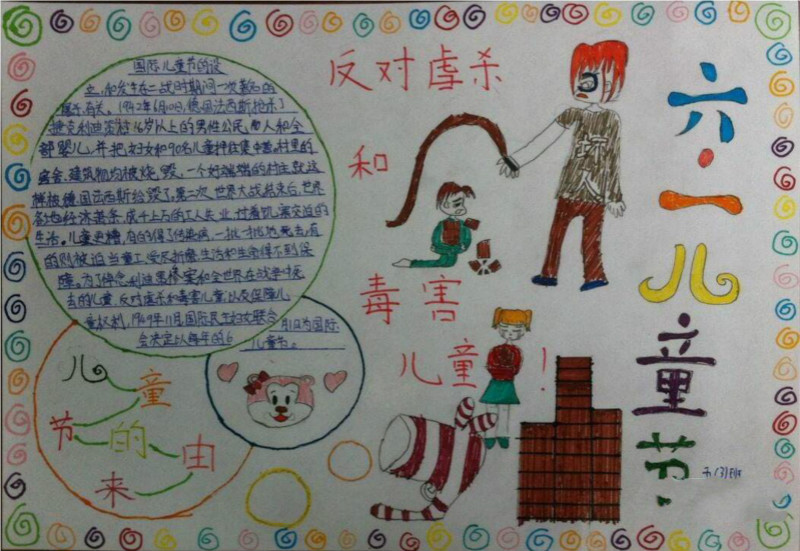 国际儿童节的设
立,和发生在二战时期间一次
有关。1942年6月10日,德国法西斯枪杀了
捷克利迪策村16岁以上的男性公民,和全
部婴儿,并把妇女和90名儿童押往集中营,村里的
房舍、建筑物均被烧毁,一个好端端的村庄就这
样被德国法西斯给毁了。第二次世界大战结束后,世界
各地经济萧条,成千上万的工人失业,
生活。儿童更糟,有的得了传染病,一批批地死去,有
的则被迫当童工,受尽折磨,生活和生命得不到保
障。为了悼念利迪策惨案和全世界在战争中死
去的儿童,反对虐杀和毒害儿童,以及保障儿
童权利,1949年11月国际民主妇女联合
会决定以每年的6
月1日为国际
儿童节。
儿童
节的由
来
反对虐杀
和
毒害
儿童!
坏人
六·一儿童节
(3)班